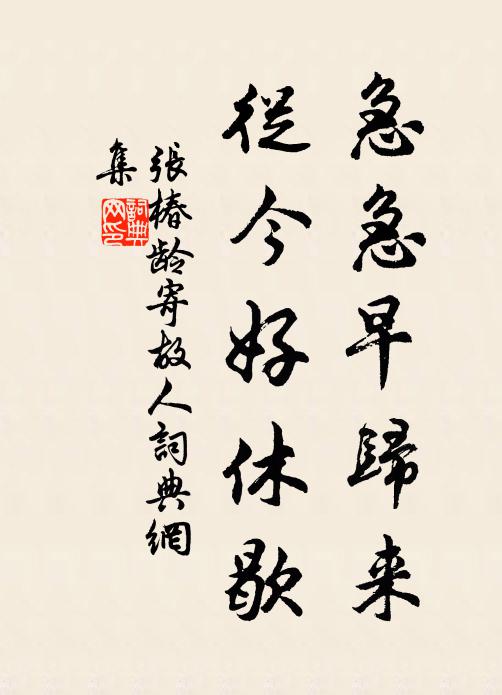 急急早歸来
從今好休歇
張椿龄寄故人詞典網
集
詞典
网印